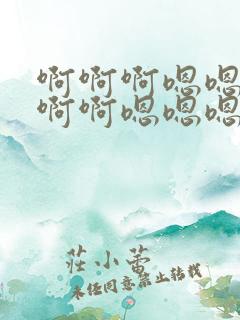 啊啊啊嗯嗯
啊啊嗯嗯嗯
莊小蕾
未經同意禁止轉載